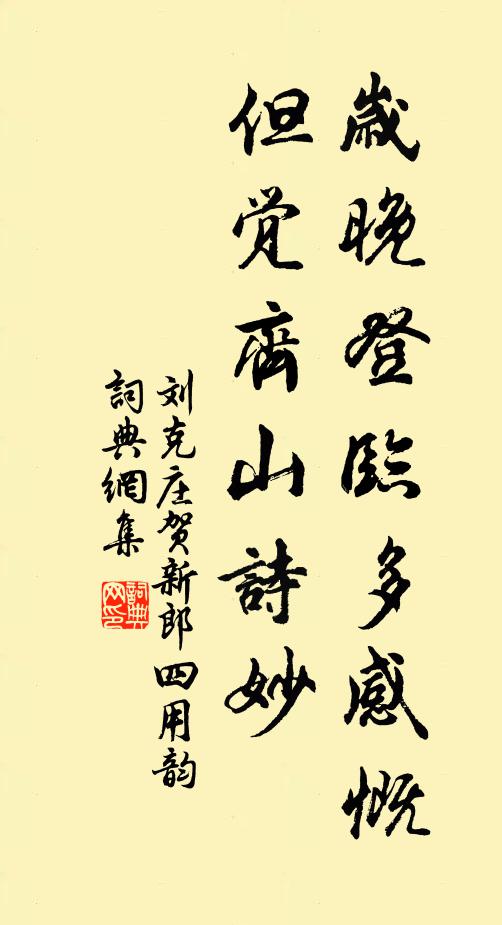 歲晚登臨多感慨
但覺齊山詩妙
刘克庄贺新郎四用韵
詞典網集
詞典網印